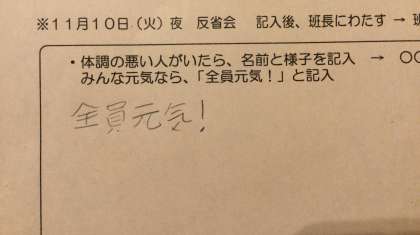 ※11月10日（火）夜 反省会 記入後、班長にわたす → 班
・体調の悪い人がいたら、名前と様子を記入 → 〇〇
みんな元気なら、「全員元気！」と記入
全員元気！